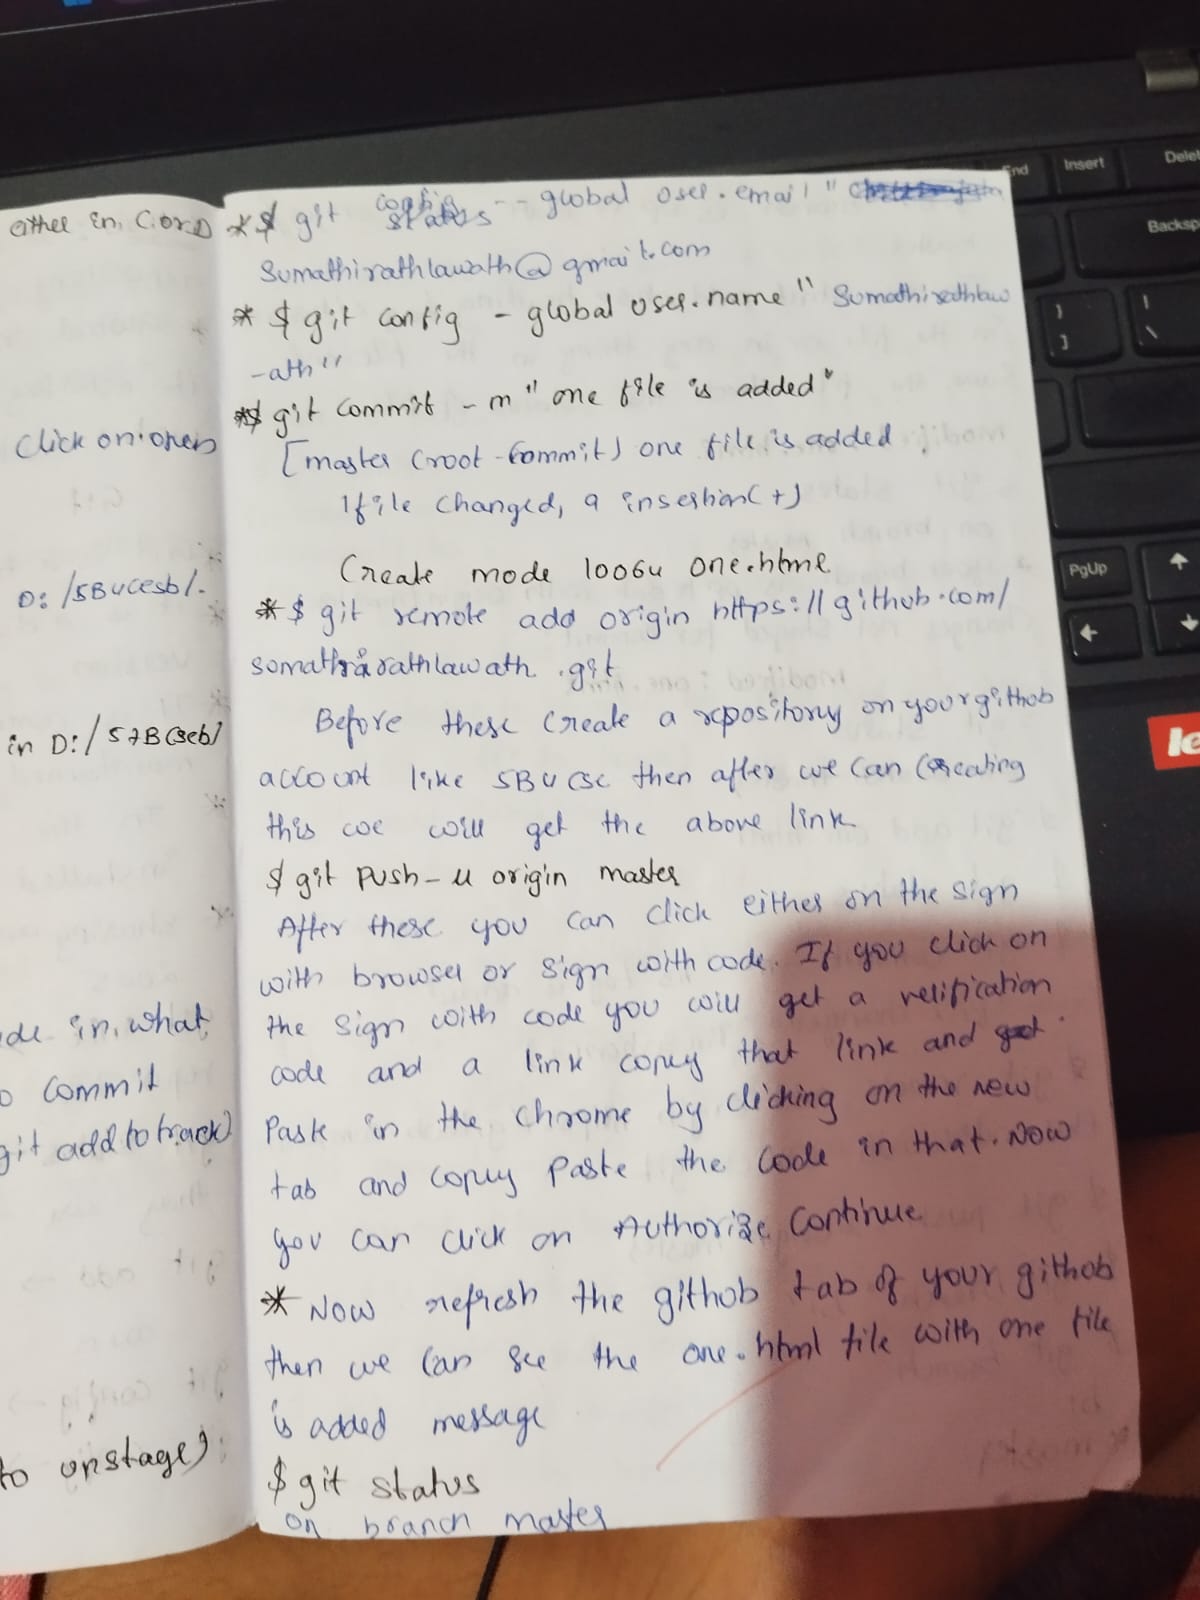 either in, C:or D
Click on open
D: /5BUcesb/.
in D:/
ode in, what
to commit
git add to track)
to unstage)
*$ git config status -- global user.email "
Sumathirathlawath@gmail.com
* $ git config - global user.name " Sumathirathlaw
-ath"
*$ git commit - m " one file is added"
[master (root-commit) one file is added
1file changed, 9 insertion(+)
Create mode 100644 one.html
*$ git remote add origin https://github.com/
sumathirathlawath .git
Before these Create a repository on your github
account like 5BU CSC then after we can Creating
this we will get the above link
$ git push-u origin master
After these you can click either on the sign
with browser or Sign with code. If you click on
the Sign with code you will get a verification
code and a link copy that link and
Paste in the chrome by clicking on the new
tab and copy Paste the Code in that. Now
you can click on Authorize Continue
* Now refresh the github tab of your github
then we can see the one.html file with one file
is added message
$ git status
on branch master
End
Insert
Delet
Backsp
}
]
|
\
PgUp
↑
←
↓
le